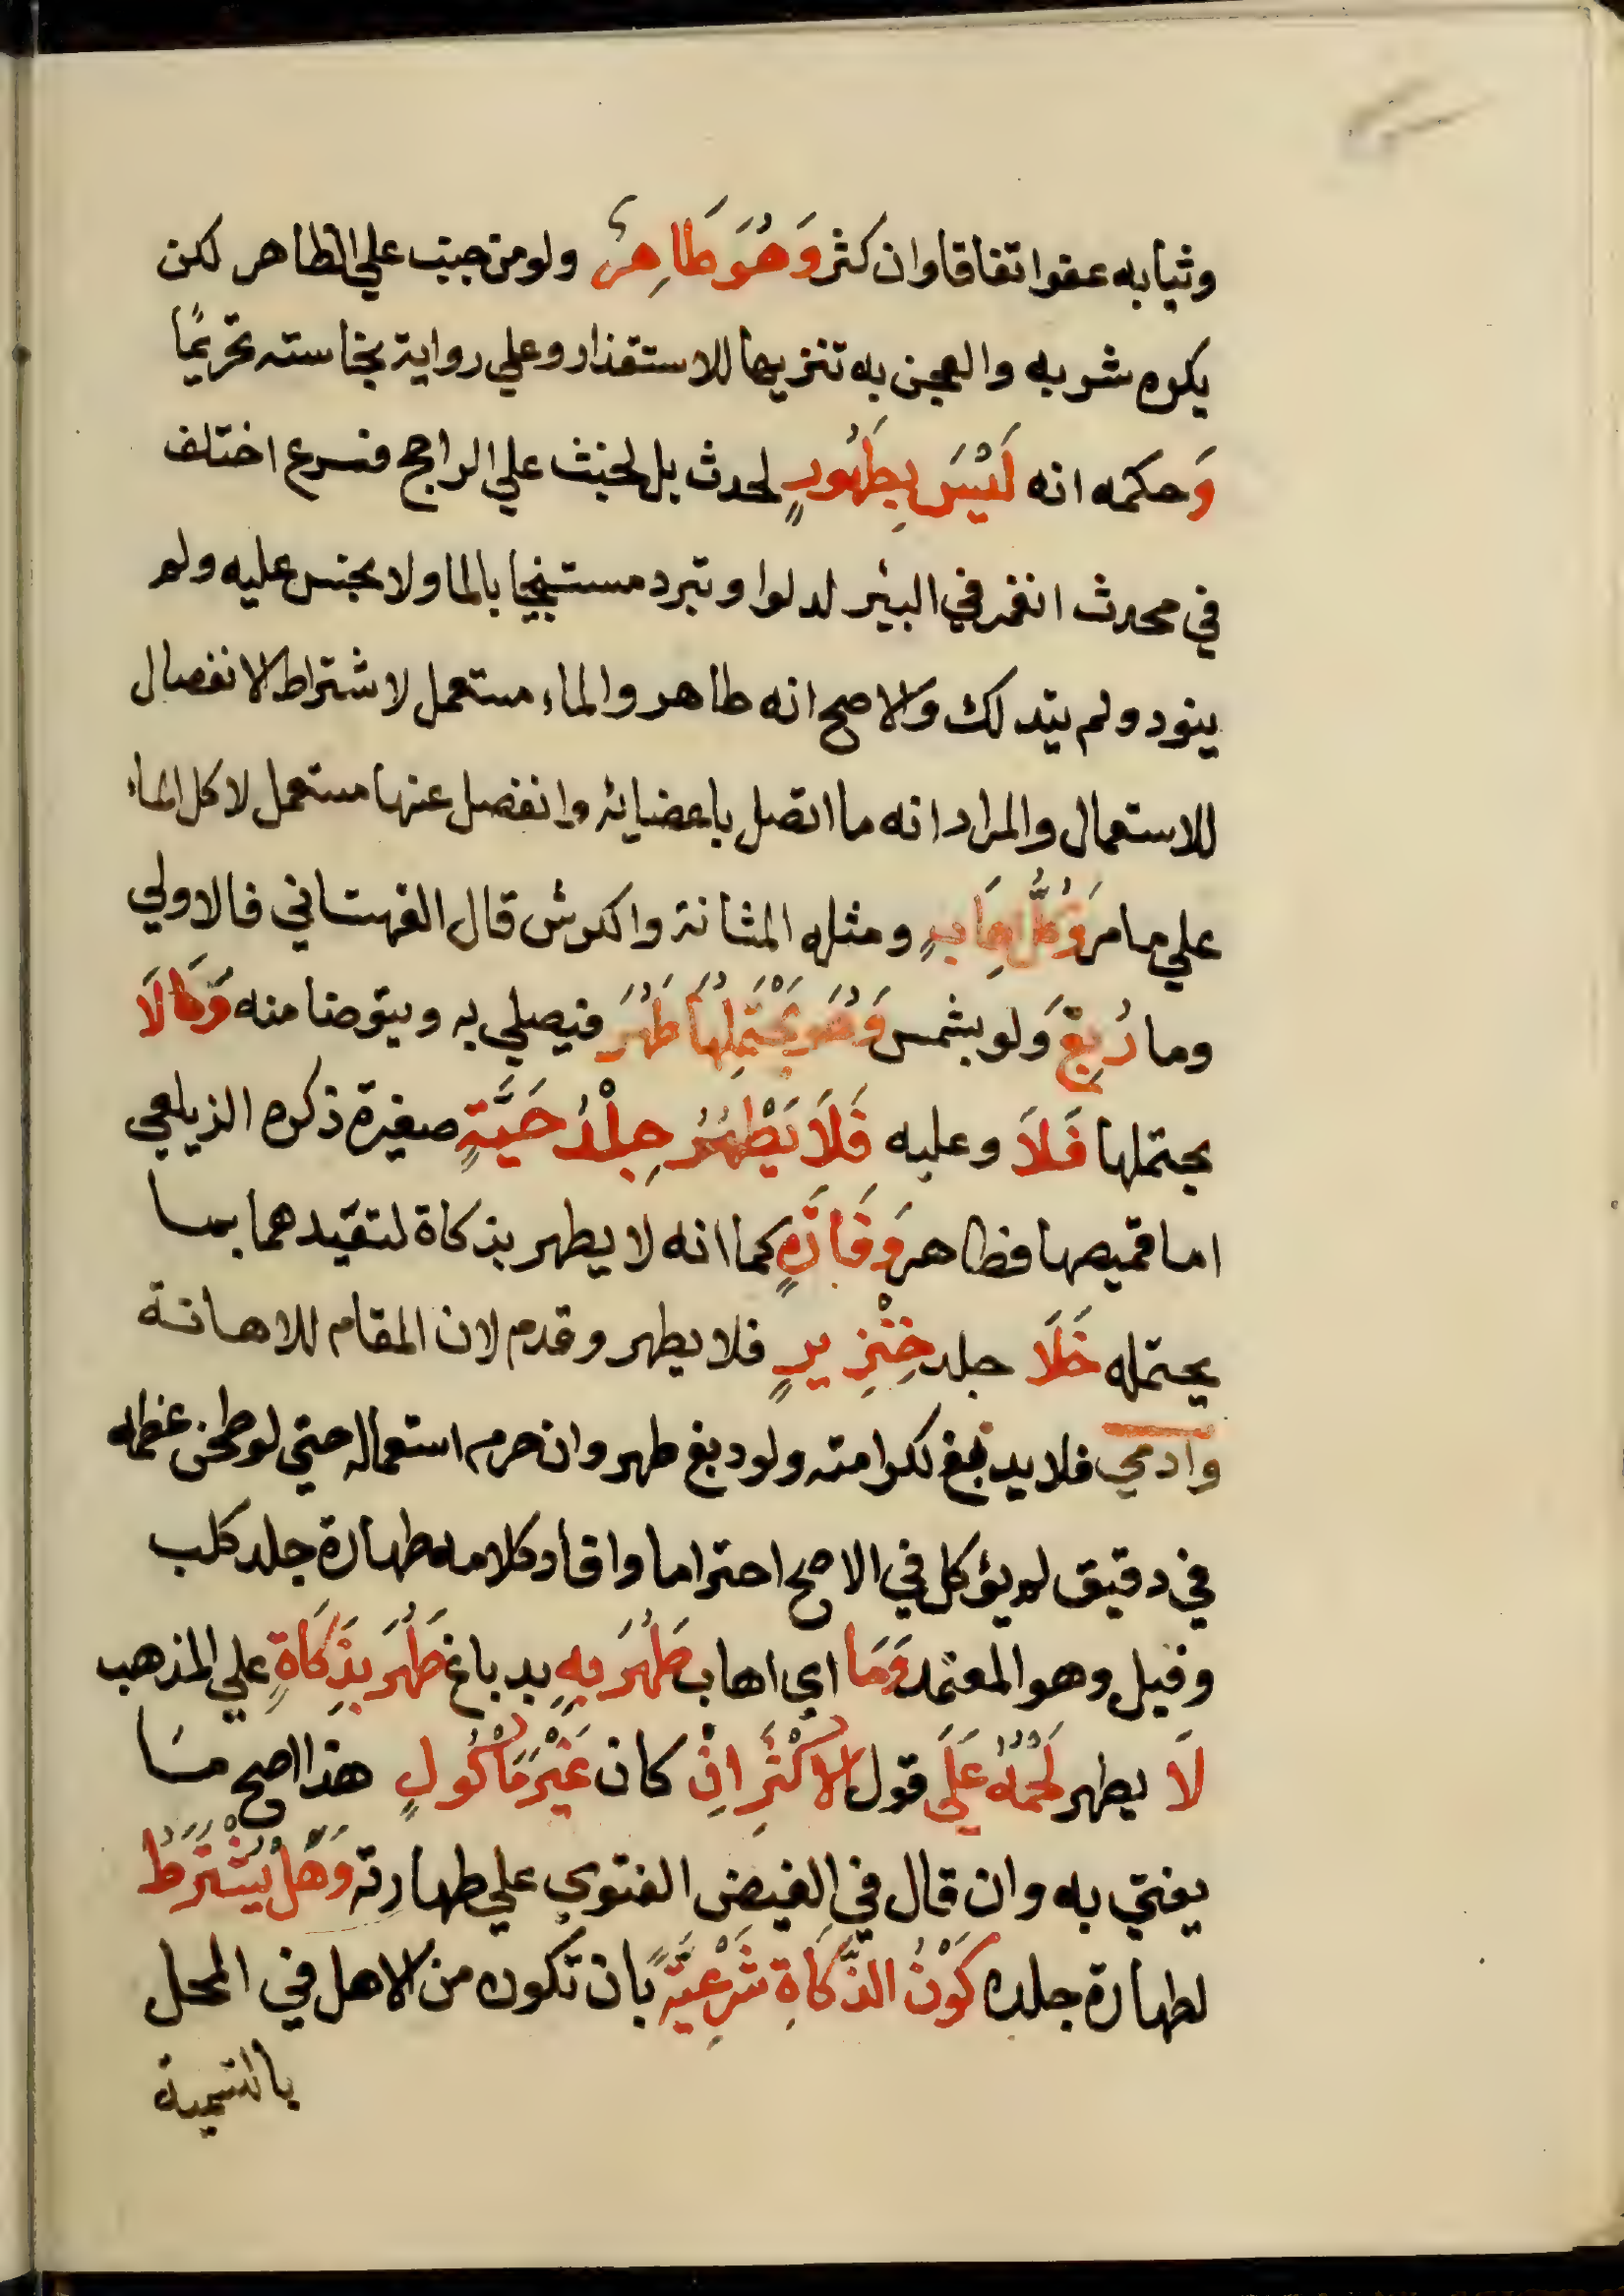 وثيابه عفو اتفاقا وان كثر وَهُوَ طَاهِرٌ ولو من جنب علي الظاهر لكن
يكره شربه والعجن به تنزيها للاستقذار وعلي رواية نجاسته تحريمًا
وَحكمه انه لَيْسَ بِطَهُورٍ لحدث بل لخبث علي الراجح فسرع اختلف
في محدث انغمر في البئر لدلوا وتبرد مستنجيا بالما ولا نجس عليه ولم
ينود ولم يتدلك والاصح انه طاهر والماء مستعمل لاشتراط الانفصال
للاستعمال والمراد انه ما اتصل باعضايه وانفصل عنها مستعمل لا كل الماء
علي ما مر وَكُلُّ اِهَابٍ ومثله المثانة والكرش قال القهستاني فالاولي
وما دُبِغَ ولو بشمس وَهُوَ يَحْتَمِلُهَا طَهُرَ فيصلي به ويتوضا منه وَمَا لَا
يحتملها فَلَا وعليه فَلَا يَطْهُرُ جِلْدُ حَيَّةٍ صغيرة ذكره الزيلعي
اما قميصها فطاهر وَفَارَةٍ كما انه لا يطهر بذكاة لتقيدهما بما
يحتمله خَلَا جلد خِنْزِيرٍ فلا يطهر وقدم لان المقام للاهانة
وادمي فلا يدبغ لكرامته ولو دبغ طهر وان حرم استعماله حتي لو طحن عظمه
في دقيق لم يؤكل في الاصح احتراما وافاد كلامه طهارة جلد كلب
وفيل وهو المعتمد وَمَا اي اهاب طَهُرَ بِهِ بدباغ طَهُرَ بِذَكَاةٍ علي المذهب
لَا يطهر لَحْمُهُ عَلَي قول الاكْثَرِ اِنْ كان غَيْرَ مَاْكُولٍ هذا اصح مَا
يفتي به وان قال في الفيض الفتوي علي طهارته وَهَلْ يُشْتَرَطُ
لطهارة جلده كَوْنُ الذَّكَاةِ شَرْعِيَّةً بان تكون من الاهل في المحل
بالتسمية